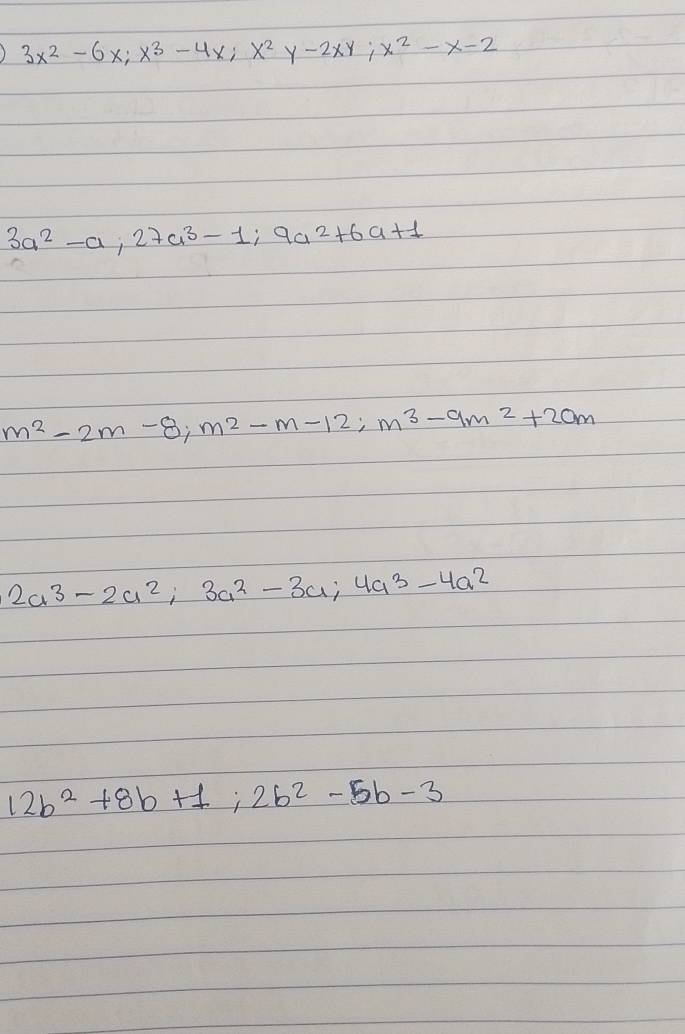 ) 3x² - 6x; x³ - 4x; x² y - 2xy; x² - x - 2
3a² - a; 27a³ - 1; 9a² + 6a + 1
m² - 2m - 8; m² - m - 12; m³ - 9m² + 20m
2a³ - 2a²; 3a² - 3a; 4a³ - 4a²
12b² + 8b + 1; 2b² - 5b - 3